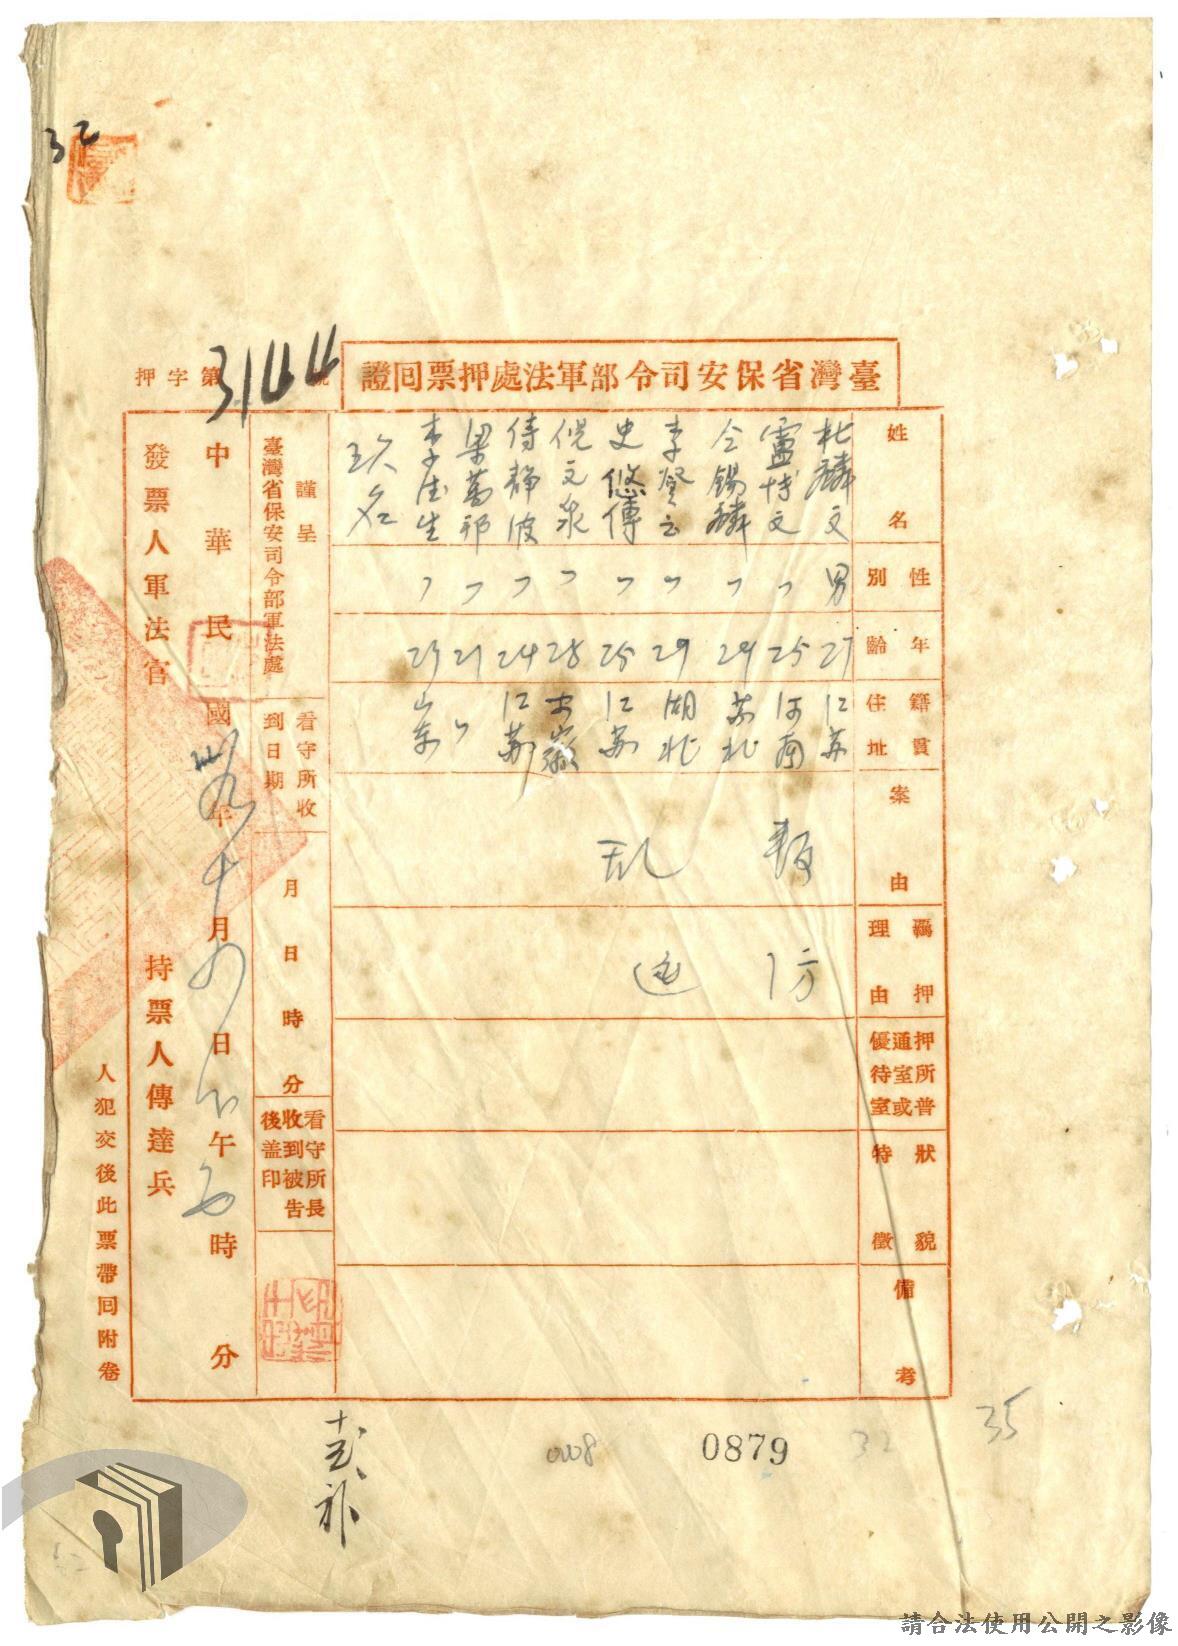 32
臺灣省保安司令部軍法處押票回證
押字第3144號
姓名
杜麟文
盧博文
仝錫麟
李登云
史悠傳
倪文泉
侍靜波
梁萬邦
玖名
性別
男
〃
〃
〃
〃
〃
〃
〃
〃
年齡
27
25
29
29
25
28
24
21
23
籍貫住址
江苏
河南
苏北
湖北
江苏
安徽
江苏
〃
山东
案由
叛乱
羈押理由
防逃
押所普通室或優待室
狀貌特徵
備考
謹呈
臺灣省保安司令部軍法處
看守所收到日期
月日時分
看守所長收到被告後盖印
中華民國卅九年十月 日 午 時分
發票人軍法官
持票人傳達兵
人犯交後此票帶回附卷
0879
32
35
請合法使用公開之影像